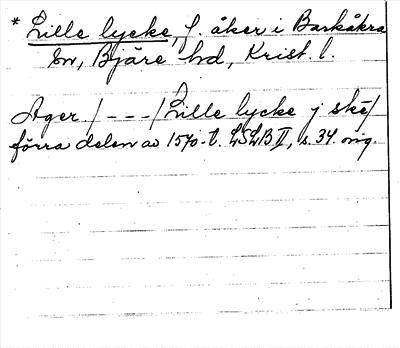 * Lille lycke, f. åker i Barkåkra
sn, Bjäre hd, Krist. l.
Ager / - - - / Lille lycke j ské/
förra delen av 1570-t. LSLB II, s. 34. orig.